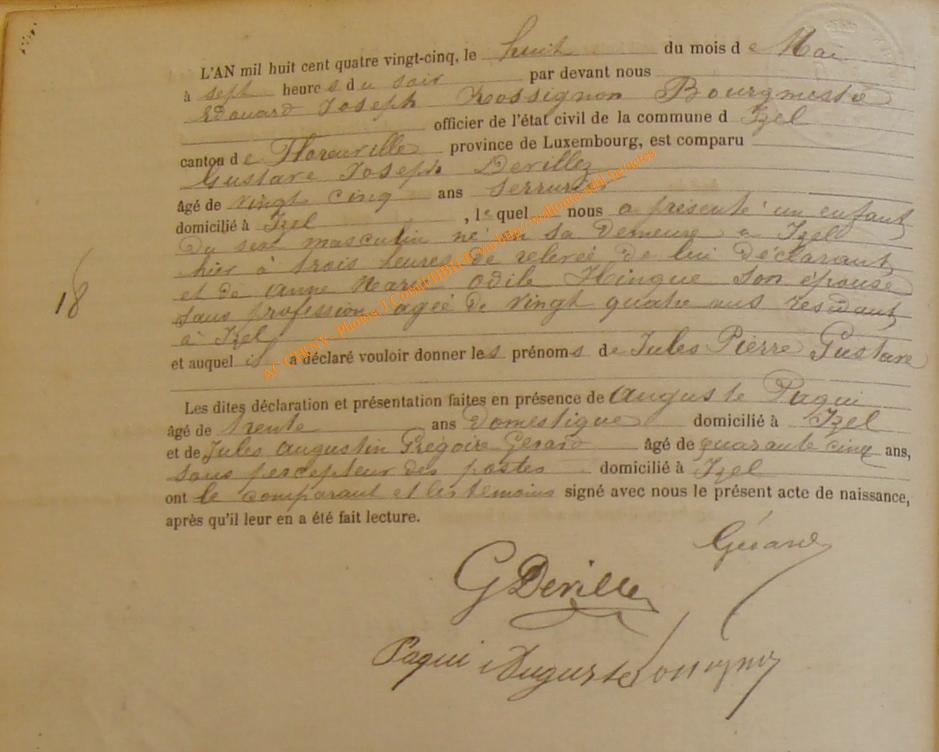 L'AN mil huit cent quatre vingt-cinq, le huit du mois de Mai
à sept heures du soir par devant nous
Edouard Joseph Rossignon Bourgmestre
officier de l'état civil de la commune d Izel
canton de Florenville province de Luxembourg, est comparu
Gustave Joseph Devillez
âgé de vingt cinq ans serrurier
domicilié à Izel, lequel nous a présenté un enfant
du sexe masculin né en sa demeure à Izel
hier à trois heures de relevée de lui déclarant,
et de Anne Marie Odile Hingue son épouse
sans profession agée de vingt quatre ans résidant
à Izel
18
et auquel il a déclaré vouloir donner les prénoms de Jules Pierre Gustave
Les dites déclaration et présentation faites en présence de Auguste Paqui
âgé de trente ans Domestique domicilié à Izel
et de Jules Augustin Grégoire Gérard âgé de quarante cinq ans,
sous percepteur des postes domicilié à Izel
ont le comparant et les témoins signé avec nous le présent acte de naissance,
après qu'il leur en a été fait lecture.
Gérard
G Devillez
Paqui Auguste Rossignon